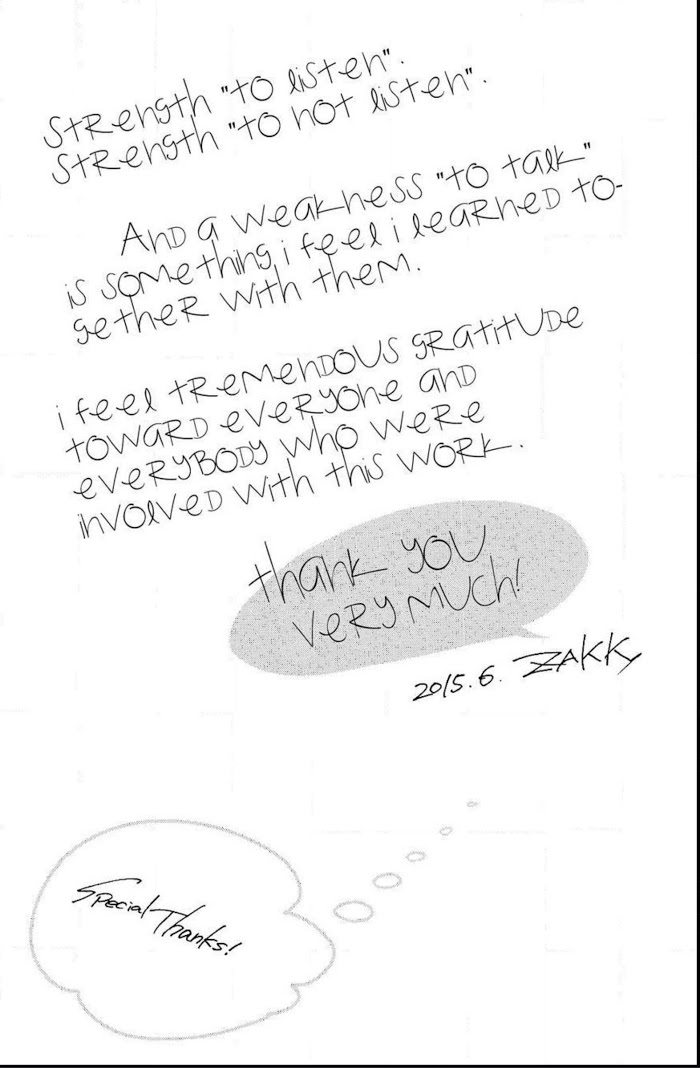 Strength "to listen".
Strength "to not listen".
And a weakness "to talk"
is something i feel i learned to-
gether with them.
i feel tremendous gratitude
toward everyone and
everybody who were
involved with this work.
thank you
very much!
2015.6. ZAKK
Special Thanks!